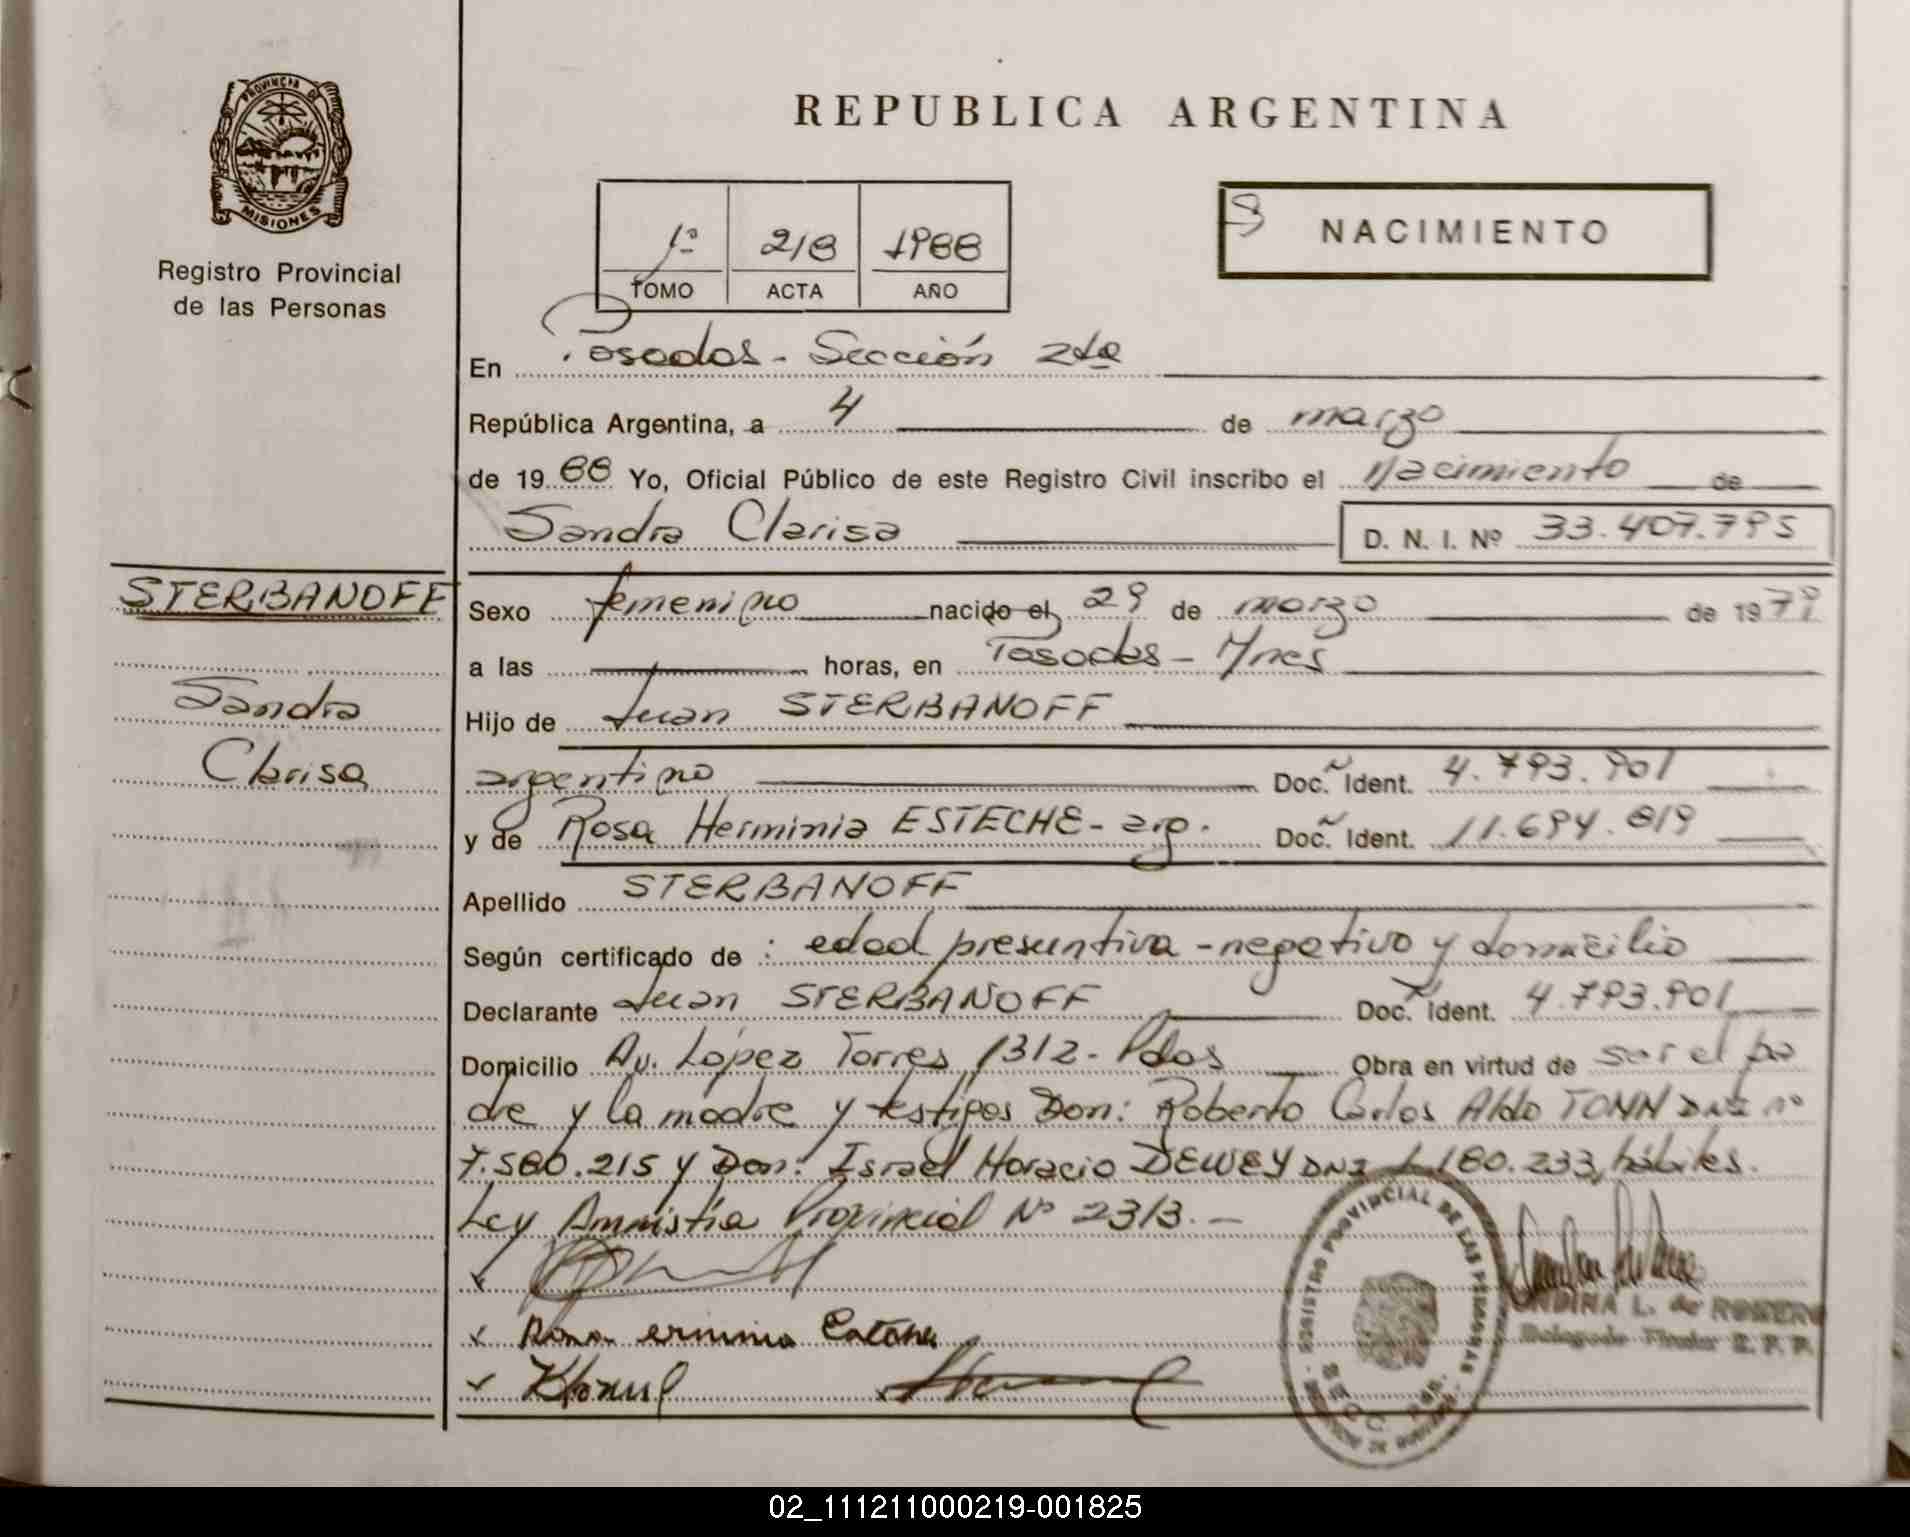 PROVINCIA DE
MISIONES
Registro Provincial
de las Personas
REPUBLICA ARGENTINA
1º 218 1988
TOMO ACTA AÑO
NACIMIENTO
En Posadas - Sección 2da
República Argentina, a 4 de marzo
de 1988 Yo, Oficial Público de este Registro Civil inscribo el Nacimiento de
Sandra Clarisa D. N. I. Nº 33.407.795
STERBANOFF
Sandra
Clarisa
Sexo femenino nacido el 29 de marzo de 1979
a las horas, en Posadas - Mnes
Hijo de Juan STERBANOFF
argentino Doc. Ident. 4.793.901
y de Rosa Herminia ESTECHE - arg. Doc. Ident. 11.694.819
Apellido STERBANOFF
Según certificado de : edad presuntiva - negativo y domicilio
Declarante Juan STERBANOFF Doc. Ident. 4.793.901
Domicilio Av. López Torres 1312 - Pdas Obra en virtud de ser el pa
dre y la madre y testigos Don: Roberto Carlos Aldo TONN DNI nº
7.580.215 y Don: Israel Horacio DEWEY DNI 1.180.233, hábiles.
Ley Amnistía Provincial Nº 2313. -
REGISTRO PROVINCIAL DE LAS PERSONAS
SECC. 2da.
ONDINA L. de ROMERO
Delegado Titular R. P. P.
02_111211000219-001825